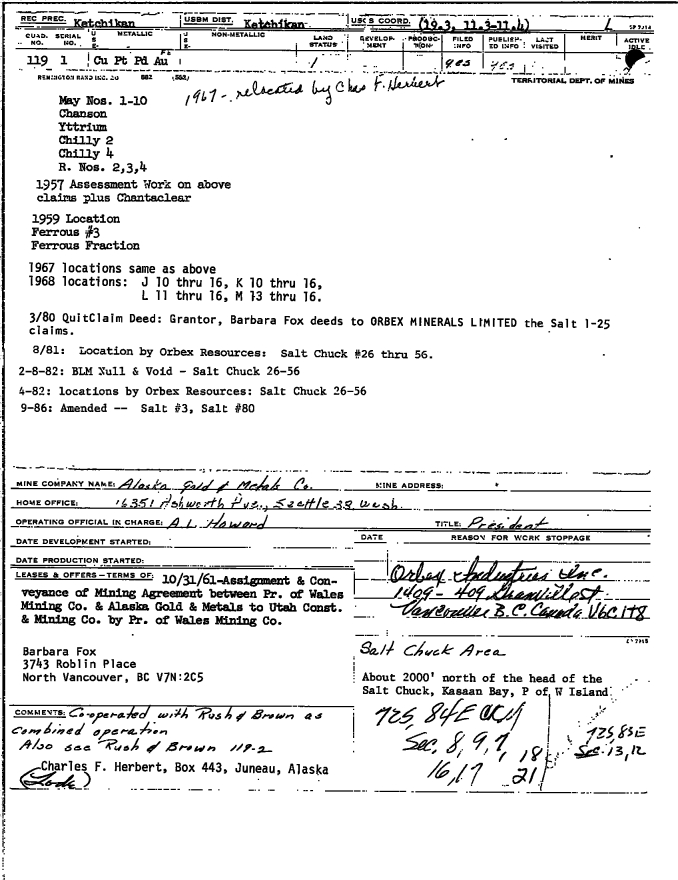 REC PREC. Ketchikan USBM DIST. Ketchikan USGS COORD. (19.3, 11.3-11.4) L
QUAD. NO. SERIAL NO. USE- METALLIC USE- NON-METALLIC LAND STATUS DEVELOP-MENT PRODUC-TION FILED INFO PUBLISH-ED INFO LAST VISITED MERIT ACTIVE IDLE
119 1 Cu Pt Pd Au / yes yes
REMINGTON RAND INC. TERRITORIAL DEPT. OF MINES
May Nos. 1-10 1967- relocated by Chas F. Herbert
Chanson
Yttrium
Chilly 2
Chilly 4
R. Nos. 2,3,4
1957 Assessment Work on above
claims plus Chantaclear
1959 Location
Ferrous #3
Ferrous Fraction
1967 locations same as above
1968 locations: J 10 thru 16, K 10 thru 16,
L 11 thru 16, M 13 thru 16.
3/80 QuitClaim Deed: Grantor, Barbara Fox deeds to ORBEX MINERALS LIMITED the Salt 1-25
claims.
8/81: Location by Orbex Resources: Salt Chuck #26 thru 56.
2-8-82: BLM Null & Void - Salt Chuck 26-56
4-82: locations by Orbex Resources: Salt Chuck 26-56
9-86: Amended -- Salt #3, Salt #80
MINE COMPANY NAME: Alaska Gold & Metals Co. MINE ADDRESS:
HOME OFFICE: 16351 Ashworth Ave., Seattle 33 Wash.
OPERATING OFFICIAL IN CHARGE: A.L. Howard TITLE: President
DATE DEVELOPMENT STARTED: DATE REASON FOR WORK STOPPAGE
DATE PRODUCTION STARTED:
LEASES & OFFERS-TERMS OF: 10/31/61-Assignment & Con-
veyance of Mining Agreement between Pr. of Wales
Mining Co. & Alaska Gold & Metals to Utah Const.
& Mining Co. by Pr. of Wales Mining Co.
Orbex Industries Inc.
1409-409 Granville St
Vancouver B.C. Canada V6C 1T8
Barbara Fox
3743 Roblin Place
North Vancouver, BC V7N:2C5
Salt Chuck Area
About 2000' north of the head of the
Salt Chuck, Kasaan Bay, P of W Island
COMMENTS: Co-operated with Rush & Brown as
combined operation
Also see Rush & Brown 119-2
Charles F. Herbert, Box 443, Juneau, Alaska
(Lode)
T25, 84E CRM
Sec. 8, 9, 7, 18
16, 17 21
T25, 85E
Sec. 13, 12